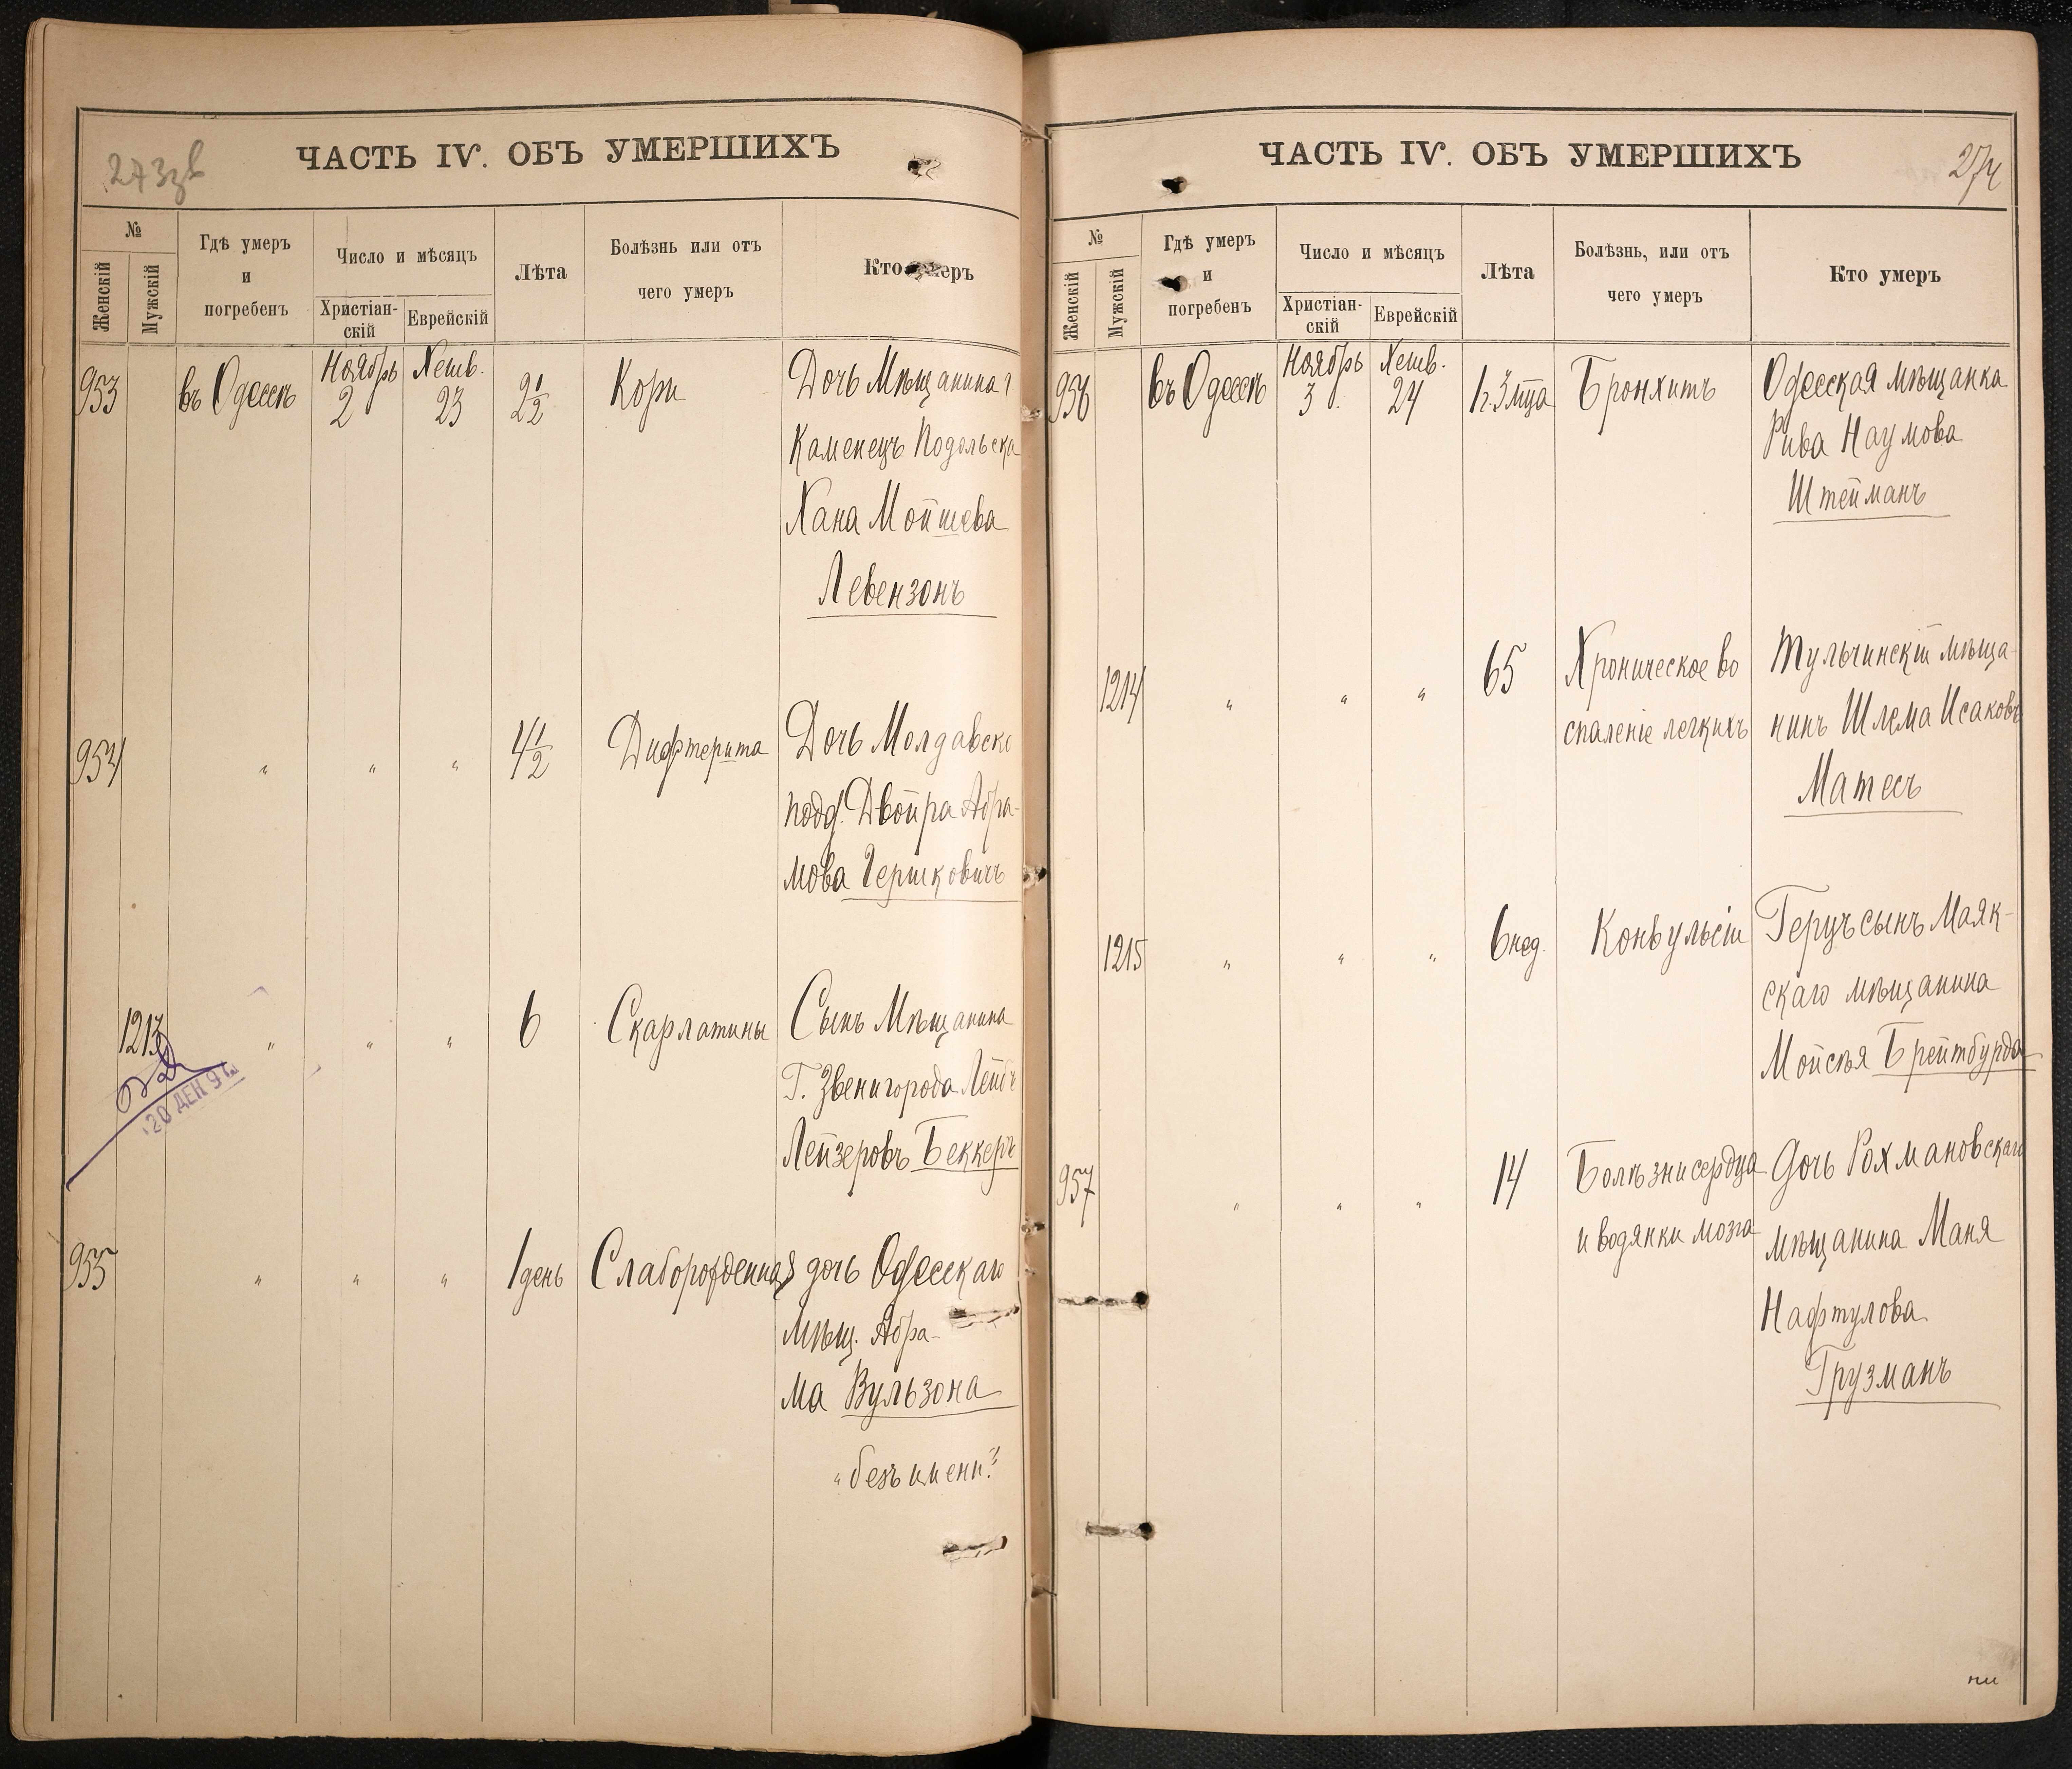 273зв
ЧАСТЬ IV. ОБЪ УМЕРШИХЪ
№
Женскій
Мужскій
Гдѣ умеръ
и
погребенъ
Число и мѣсяцъ
Христіан-
скій
Еврейскій
Лѣта
Болѣзнь или отъ
чего умеръ
Кто умеръ
953 въ Одессѣ Ноябрь 2 Хешв. 23 2 1/2 Кори Дочь Мѣщанина г
Каменецъ Подольска
Хана Мойшева
Левензонъ
954 " " " 4 1/2 Дифтерита Дочь Молдавско
подд. Двойра Абра-
мова Гершковичъ
1213 " " " 6 Скарлатины Сынъ Мѣщанина
Г. Звенигорода
Лейзеровъ Беккеръ
20 ДЕН 9
955 " " " 1 день Слаборожденная дочь Одесскаго
мѣщ. Абра-
ма Вульзона
"безъ имени"
ЧАСТЬ IV. ОБЪ УМЕРШИХЪ
274
№
Женскій
Мужскій
Гдѣ умеръ
и
погребенъ
Число и мѣсяцъ
Христіан-
скій
Еврейскій
Лѣта
Болѣзнь, или отъ
чего умеръ
Кто умеръ
956 въ Одессѣ Ноябрь 3 Хешв. 24 1г. 3 мца Бронхитъ Одесская мѣщанка
Рива Наумова
Штейманъ
1214 " " " 65 Хроническое во Тульчинскій мѣща-
спаленіе легкихъ нинъ Шлема Исаковъ
Матесъ
1215 " " " 6 нед. Конвульсіи Герцъ сынъ Маяк-
скаго мѣщанина
Мойсѣя Брейтбурда
957 " " " 14 Болѣзни сердца Дочь Рохмановскаго
и водянки мозга мѣщанина Маня
Нафтулова
Грузманъ